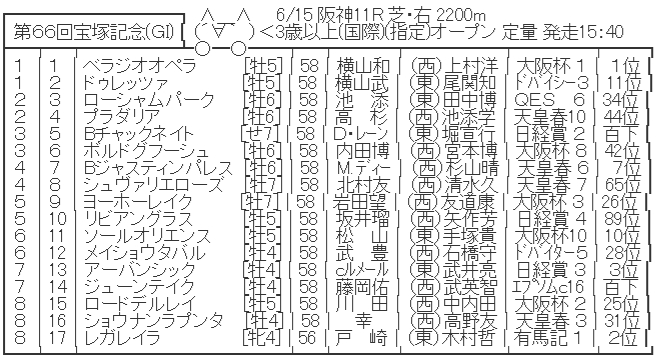 ∧＿∧ 6/15 阪神11R 芝・右 2200m
第66回宝塚記念(GI) (´∀｀) ＜3歳以上(国際)(指定)オープン 定量 発走15:40
1 1 ベラジオオペラ [牡5] 58 横山和 (西)上村洋 大阪杯 1 1位
1 2 ドゥレッツァ [牡5] 58 横山武 (東)尾関知 ﾄﾞﾊﾞｲｼｰ3 11位
2 3 ローシャムパーク [牡6] 58 池 添 (東)田中博 QES 6 34位
2 4 プラダリア [牡6] 58 高 杉 (西)池添学 天皇春10 44位
3 5 Bチャックネイト [せ7] 58 D・レーン (東)堀宣行 日経賞 2 百下
3 6 ボルドグフーシュ [牡6] 58 内田博 (西)宮本博 大阪杯 8 42位
4 7 Bジャスティンパレス [牡6] 58 M.ディー (西)杉山晴 天皇春 6 7位
4 8 シュヴァリエローズ [牡7] 58 北村友 (西)清水久 天皇春 7 65位
5 9 ヨーホーレイク [牡7] 58 岩田望 (西)友道康 大阪杯 3 26位
5 10 リビアングラス [牡5] 58 坂井瑠 (西)矢作芳 日経賞 4 89位
6 11 ソールオリエンス [牡5] 58 松 山 (東)手塚貴 大阪杯10 10位
6 12 メイショウタバル [牡4] 58 武 豊 (西)石橋守 ﾄﾞﾊﾞｲﾀｰ5 28位
7 13 アーバンシック [牡4] 58 cルメール (東)武井亮 日経賞 3 3位
7 14 ジューンテイク [牡4] 58 藤岡佑 (西)武英智 ｴﾌﾟｿﾑc16 百下
8 15 ロードデルレイ [牡5] 58 川 田 (西)中内田 大阪杯 2 25位
8 16 ショウナンラプンタ [牡4] 58 幸 (西)高野友 天皇春 3 31位
8 17 レガレイラ [牝4] 56 戸 崎 (東)木村哲 有馬記 1 2位